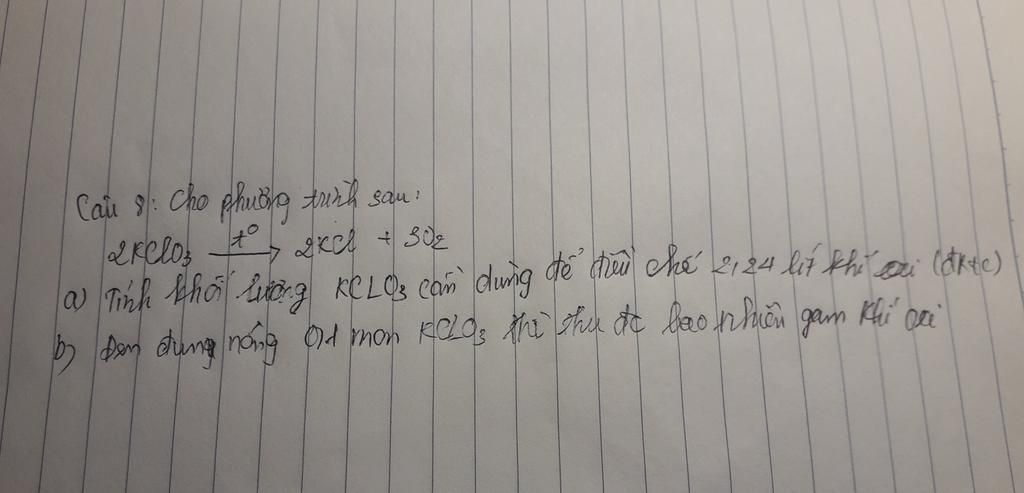 Câu 8: Cho phương trình sau:
2KClO3 t° → 2KCl + 3O2
a) Tính khối lượng KCLO3 cần dùng để điều chế 2,24 lít khí oxi (đktc)
b) Đem dung nóng 0,1 mon KCLO3 thì thu đc bao nhiêu gam khí oxi